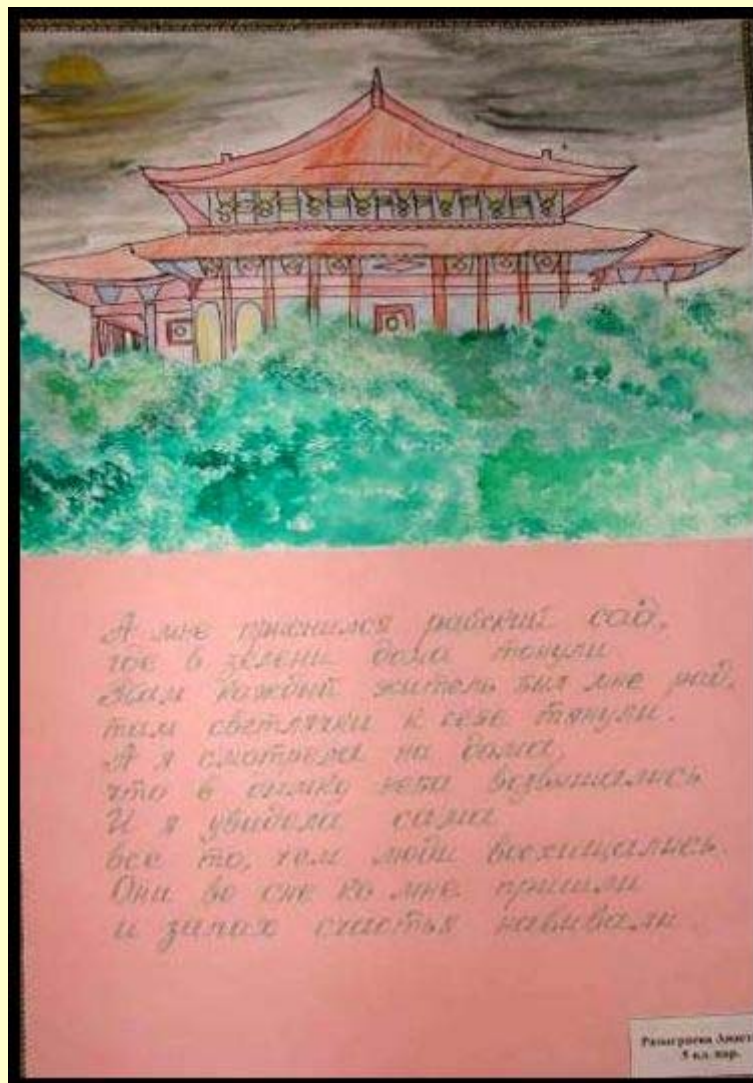 А мне приснился райский сад,
где в зелени дома тонули
Там каждый житель был мне рад,
там светлячки к себе тянули.
А я смотрела на дома,
что в синеву неба возвышались
И я увидела сама
все то, чем люди восхищались.
Они во сне ко мне пришли
и запах счастья навивали
5 кл.